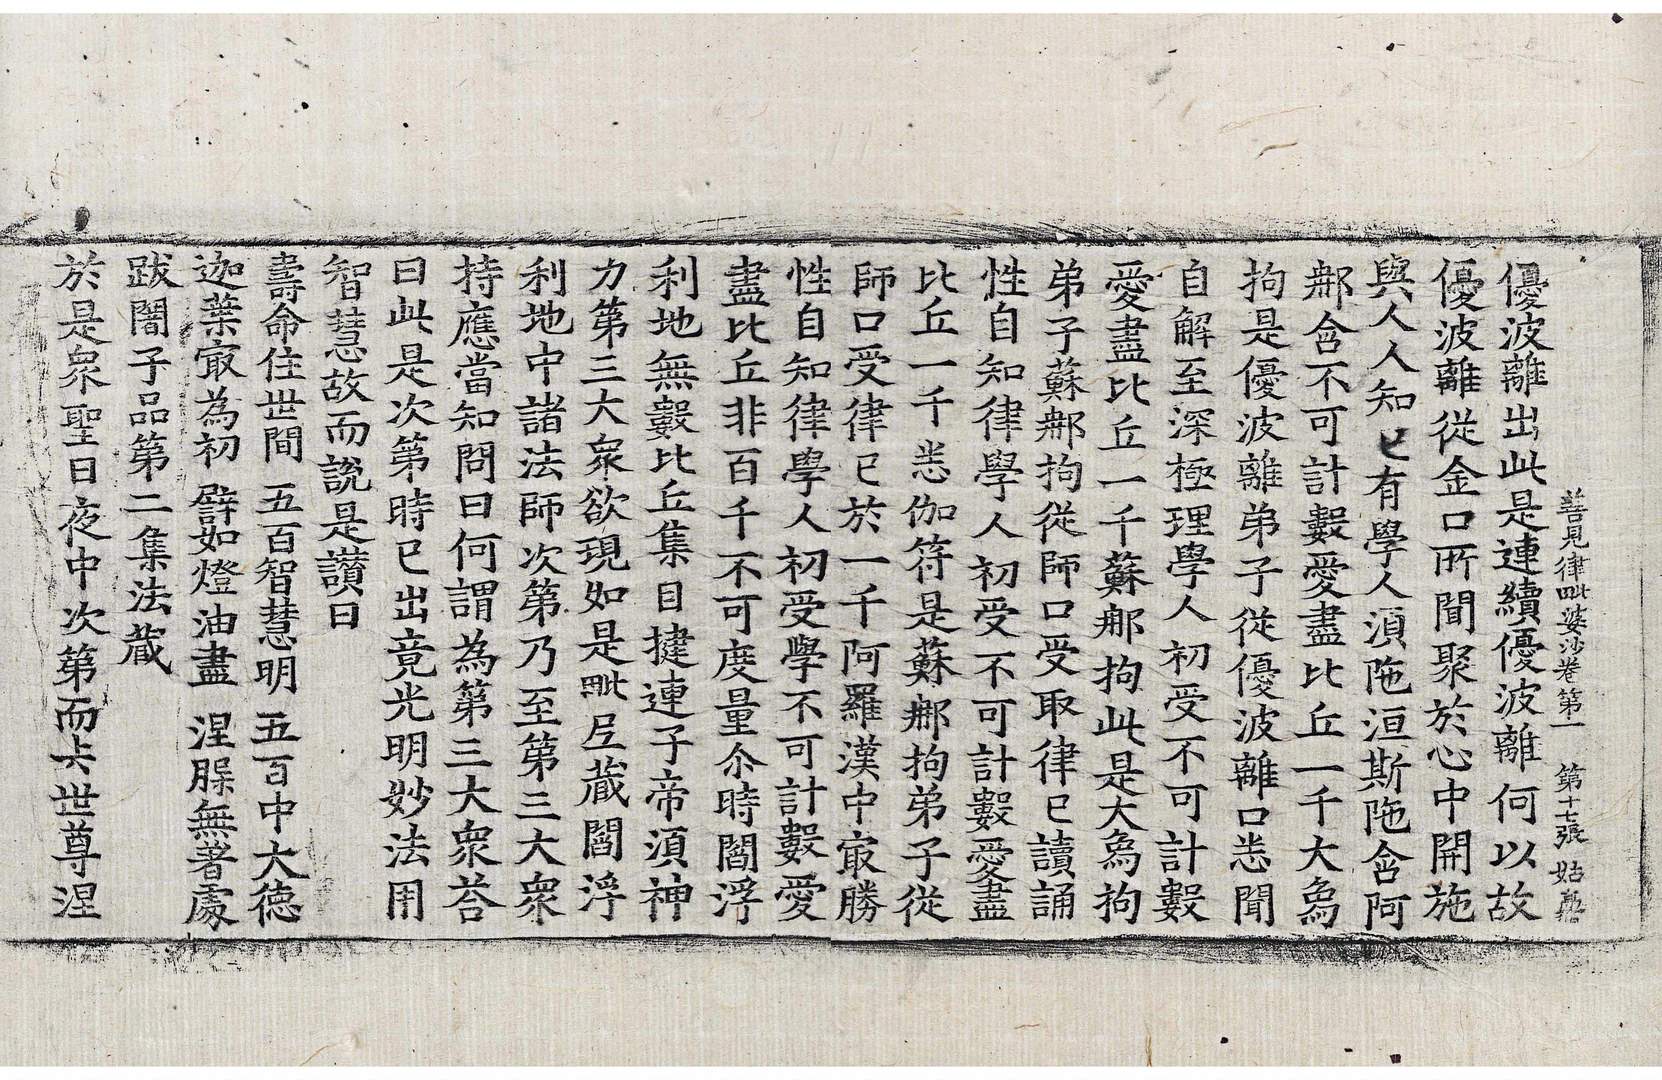 善見律毗婆沙卷第一 第十七張 姑
優波離出此是連續優波離何以故
優波離從金口所聞聚於心中開施
與人人知已有學人湏陁洹斯陁含阿
郍含不可計數愛盡比丘一千大象
拘是優波離弟子從優波離口悉聞
自解至深極理學人初受不可計數
愛盡比丘一千蘇郍拘此是大象拘
弟子蘇郍拘從師口受取律已讀誦
性自知律學人初受不可計數愛盡
比丘一千悉伽符是蘇郍拘弟子從
師口受律已於一千阿羅漢中㝡勝
性自知律學人初受學不可計數愛
盡比丘非百千不可度量尒時閻浮
利地無數比丘集目揵連子帝湏神
力第三大衆欲現如是毗尼藏閻浮
利地中諸法師次第乃至第三大衆
持應當知問曰何謂為第三大衆荅
曰此是次第時已出竟光明妙法用
智慧故而說是讃曰
壽命住世間 五百智慧明 五百中大德
迦葉㝡為初 譬如燈油盡 涅槃無著處
跋闍子品第二集法藏
於是衆聖日夜中次第而去世尊涅